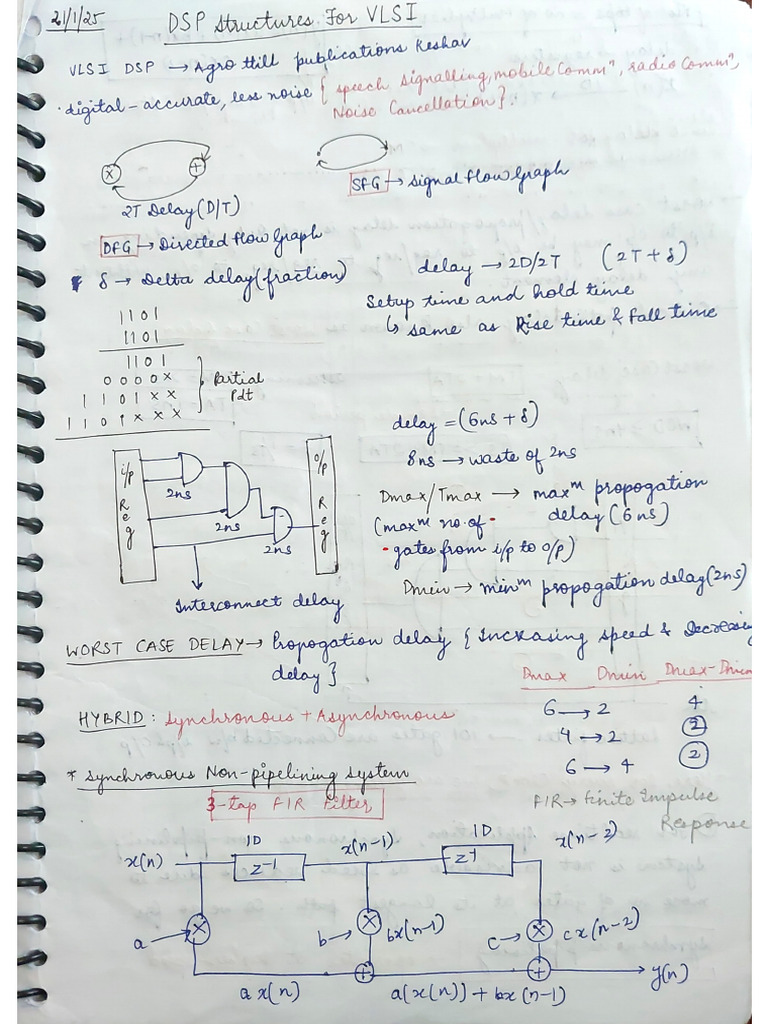 21/1/25
DSP Structures For VLSI
VLSI DSP → Agro Hill publications Keshav
· digital - accurate, less noise { speech signalling, mobile Commⁿ, radio Commⁿ,
Noise Cancellation } .
× +
2T Delay (D/T)
SFG → Signal Flow Graph
DFG → Directed Flow Graph
δ → Delta delay (fraction)
delay → 2D/2T (2T + δ)
Setup time and hold time
↳ same as Rise time & Fall time
1101
1101
1101
0000×
1101××
1101×××
Partial
Pdt
delay = (6ns + δ)
8ns → waste of 2ns
i/p Reg
2ns
2ns
2ns
o/p Reg
Interconnect delay
Dmax/Tmax → maxᵐ propogation
delay (6ns)
(maxᵐ no. of
gates from i/p to o/p)
Dmin → minᵐ propogation delay (2ns)
WORST CASE DELAY → Propogation delay { Increasing speed & Decreasing
delay }
Dmax Dmin Dmax-Dmin
6 → 2 4
4 → 2 2
6 → 4 2
HYBRID : Synchronous + Asynchronous
* Synchronous Non-pipelining System
3-tap FIR Filter
FIR → Finite Impulse
Response
x(n) 1D z⁻¹ x(n-1) 1D z⁻¹ x(n-2)
a → × b → × bx(n-1) c → × cx(n-2)
+ + y(n)
a x(n) a(x(n)) + bx(n-1)